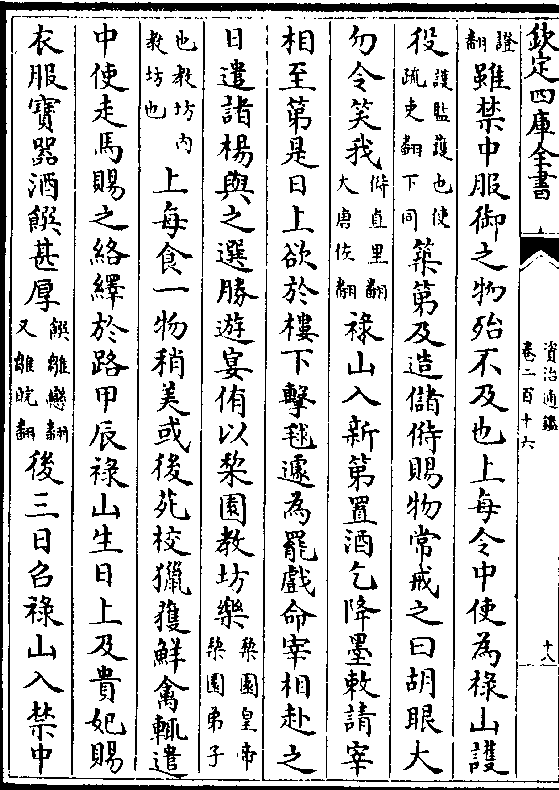 欽定四庫全書
資治通鑑
卷二百十六
十八
證翻雖禁中服御之物殆不及也上每令中使為祿山護
役護監護也使疏吏翻下同築第及造儲偫賜物常戒之曰胡眼大
勿令笑我偫直里翻大唐佐翻祿山入新第置酒乞降墨敕請宰
相至第是日上欲於樓下擊毬遽為罷戲命宰相赴之
日遣諸楊與之選勝遊宴侑以棃園教坊樂棃園皇帝棃園弟子
也教坊內教坊也上每食一物稍美或後苑校獵獲鮮禽輒遣
中使走馬賜之絡繹於路甲辰祿山生日上及貴妃賜
衣服寶器酒饌甚厚饌雛戀翻又雛晥翻後三日召祿山入禁中